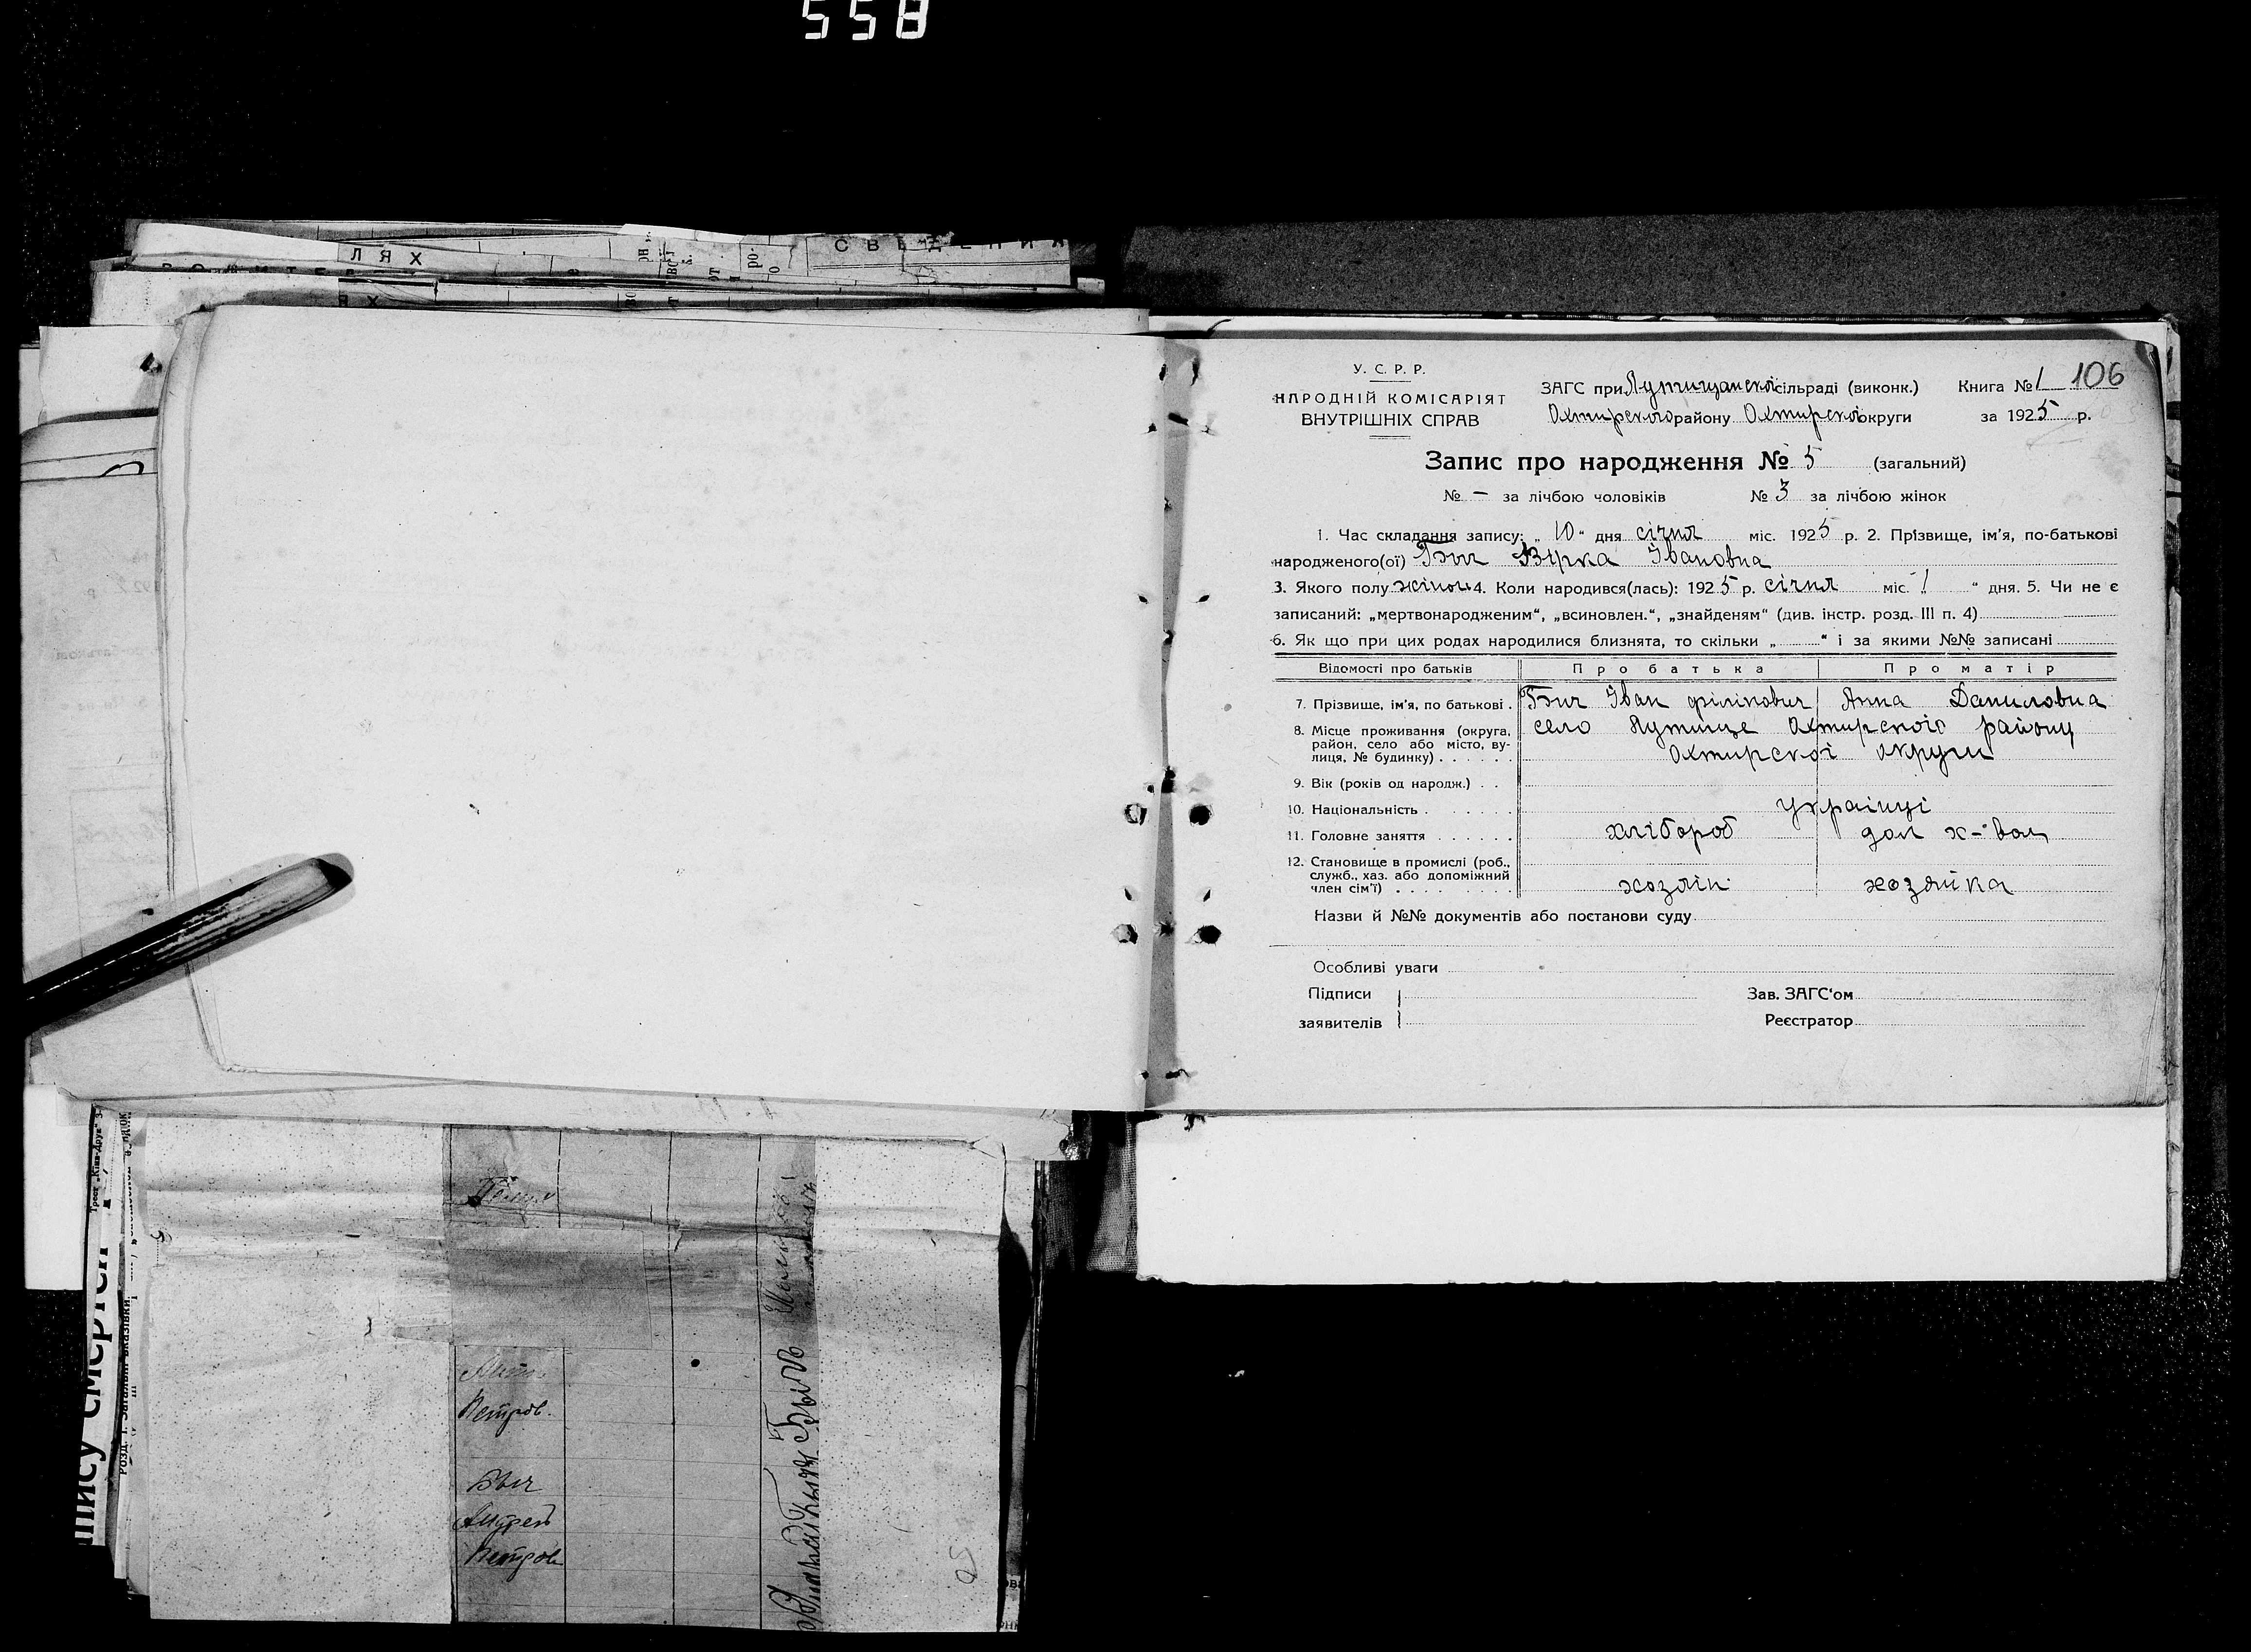 558
ЛЯХ
СВѢДЕНИЯ
У. С. Р. Р.
НАРОДНІЙ КОМІСАРІЯТ
ВНУТРІШНІХ СПРАВ
ЗАГС при Лутищанскої сільраді (виконк.)
Охтирского району Охтирскої округи
Книга № 1 106
за 1925 р.
Запис про народження № 5 (загальний)
№ — за лічбою чоловіків № 3 за лічбою жінок
1. Час складання запису: „ 10 “ дня січня міс. 1925 р. 2. Прізвище, ім'я, по-батькові
народженого(ої) Бич Вірка Івановна
3. Якого полу жіноч 4. Коли народився(лась): 1925 р. січня міс. „ 1 “ дня. 5. Чи не є
записаний: „мертвонародженим“, „всиновлен.“, „знайденям“ (див. інстр. розд. III п. 4)
6. Як що при цих родах народилися близнята, то скільки „ “ і за якими №№ записані
Відомості про батьків Про батька Про матір
7. Прізвище, ім'я, по батькові . Бич Іван Філіпович Анна Даниловна
8. Місце проживання (округа, район, село або місто, вулиця, № будинку) . . . . . . село Лутище Охтирскоіо району
Охтирскої округи
9. Вік (років од народж.) . .
10. Національність . . . . . . українці
11. Головне заняття . . . . . . хлібороб дом х-вом
12. Становище в промислі (роб., служб., хаз. або допоміжний член сім'ї) . . . . . . . . хозяін хозяйка
Назви й №№ документів або постанови суду
Особливі уваги
Підписи
заявителів
Зав. ЗАГС'ом
Реєстратор
Петров.
Быч
Андрей
Петров